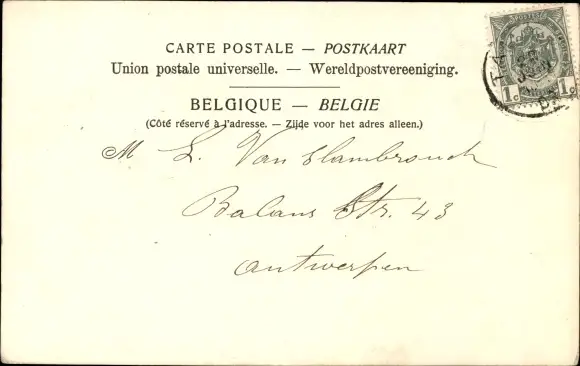 CARTE POSTALE — POSTKAART
Union postale universelle. — Wereldpostvereeniging.
BELGIQUE — BELGIE
(Côté réservé à l'adresse. — Zijde voor het adres alleen.)
M L. Van Slambrouck
Balans Str. 43
Antwerpen
1c 1c